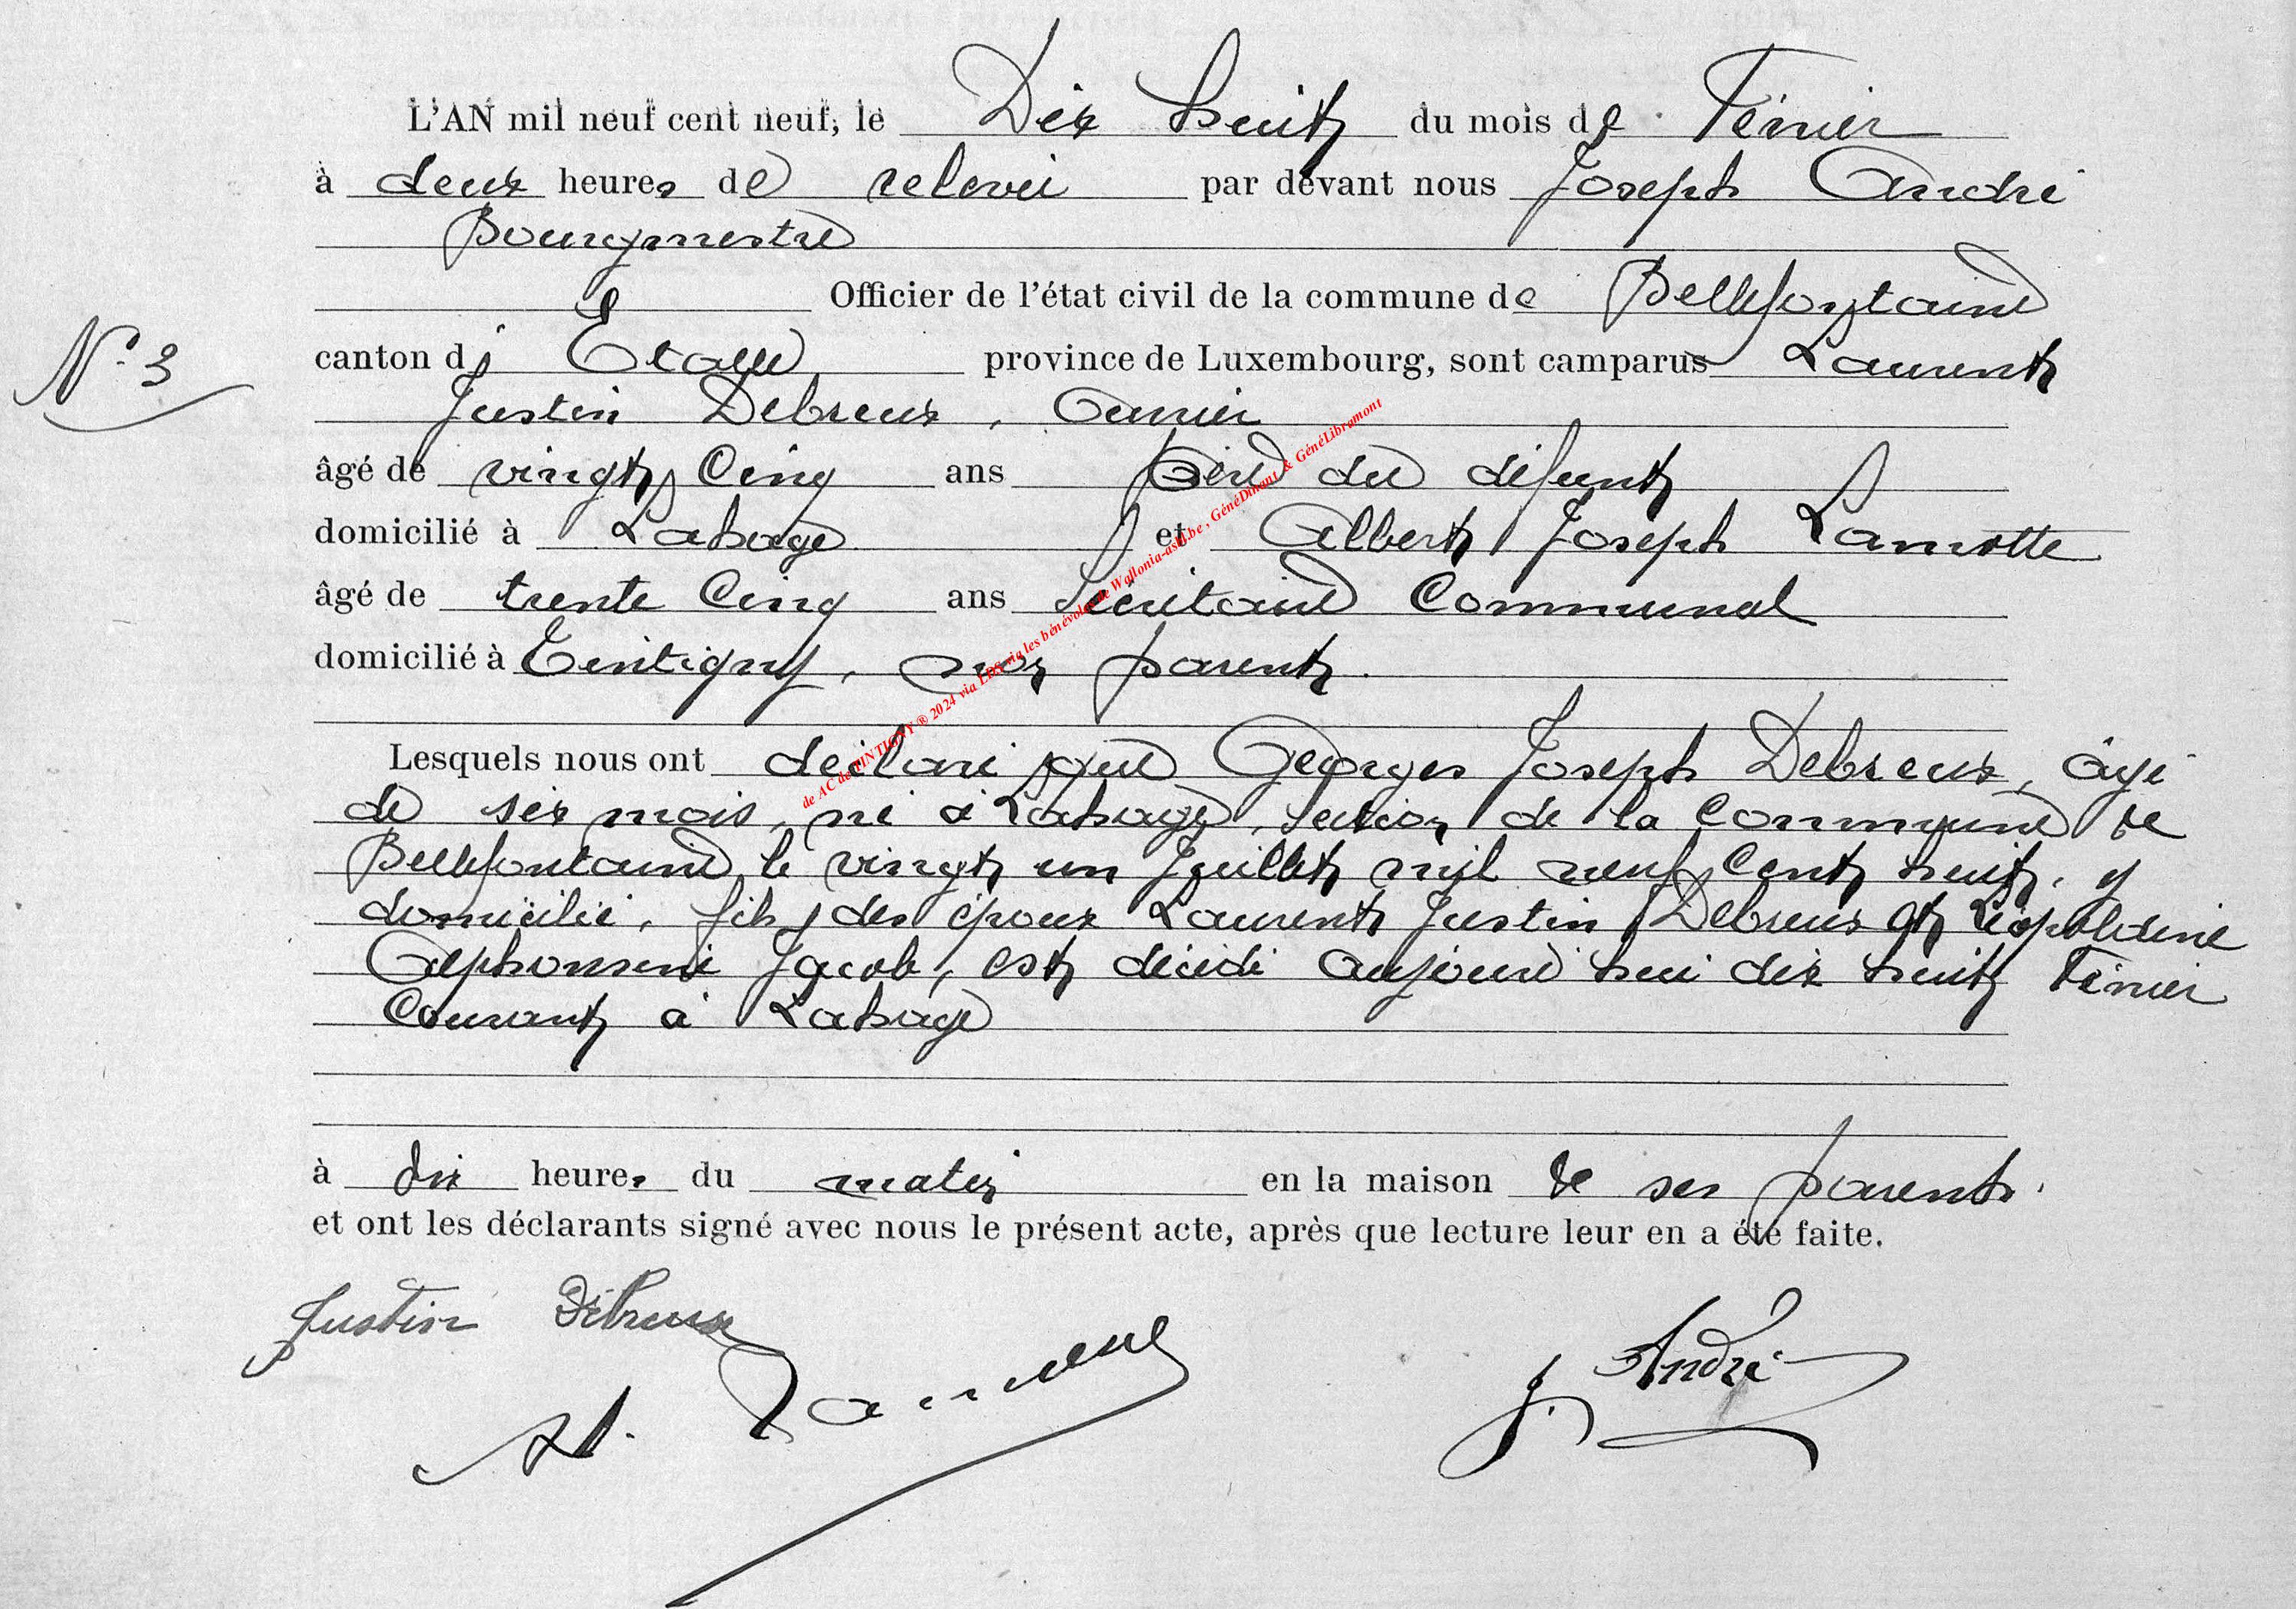 L'AN mil neuf cent neuf, le Dix huit du mois de Février
à deux heures de relevée par devant nous Joseph André
Bourgmestre
Officier de l'état civil de la commune de Bellefontaine
N° 3
canton d' Etalle province de Luxembourg, sont camparus Laurent
Justin Debreux, Ouvrier
âgé de vingt cinq ans père du défunt
domicilié à Lahage et Albert Joseph Lamotte
âgé de trente cinq ans Secrétaire Communal
domicilié à Tintigny, non parent.
Lesquels nous ont déclaré que Georges Joseph Debreux, âgé
de six mois, né à Lahage, section de la Commune de
Bellefontaine, le vingt un Juillet mil neuf cent huit, y
domicilié, fils des époux Laurent Justin Debreux et Léopoldine
Alphonsine Jacob, est décédé aujourd'hui dix huit Février
Courant à Lahage
à dix heures du matin en la maison de ses parents.
et ont les déclarants signé avec nous le présent acte, après que lecture leur en a été faite.
Justin Debreux
A. Lamotte
J. André
de AC de TINTIGNY ® 2024 via LDS via les bénévoles de Wallonia-asbl.be, GénéDinant & GénéLibramont